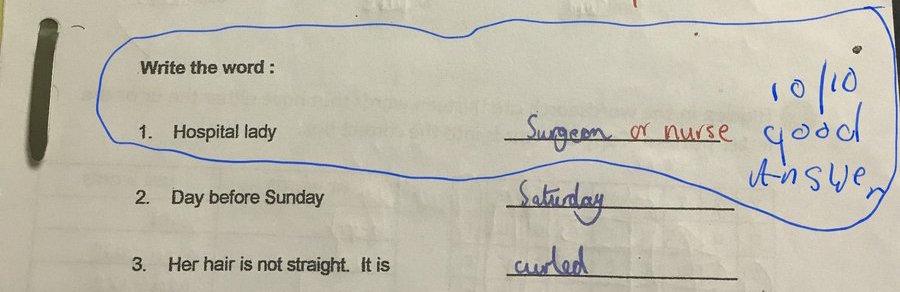 Write the word :
1. Hospital lady Surgeon or nurse
10/10
good
Answer
2. Day before Sunday Saturday
3. Her hair is not straight. It is curled